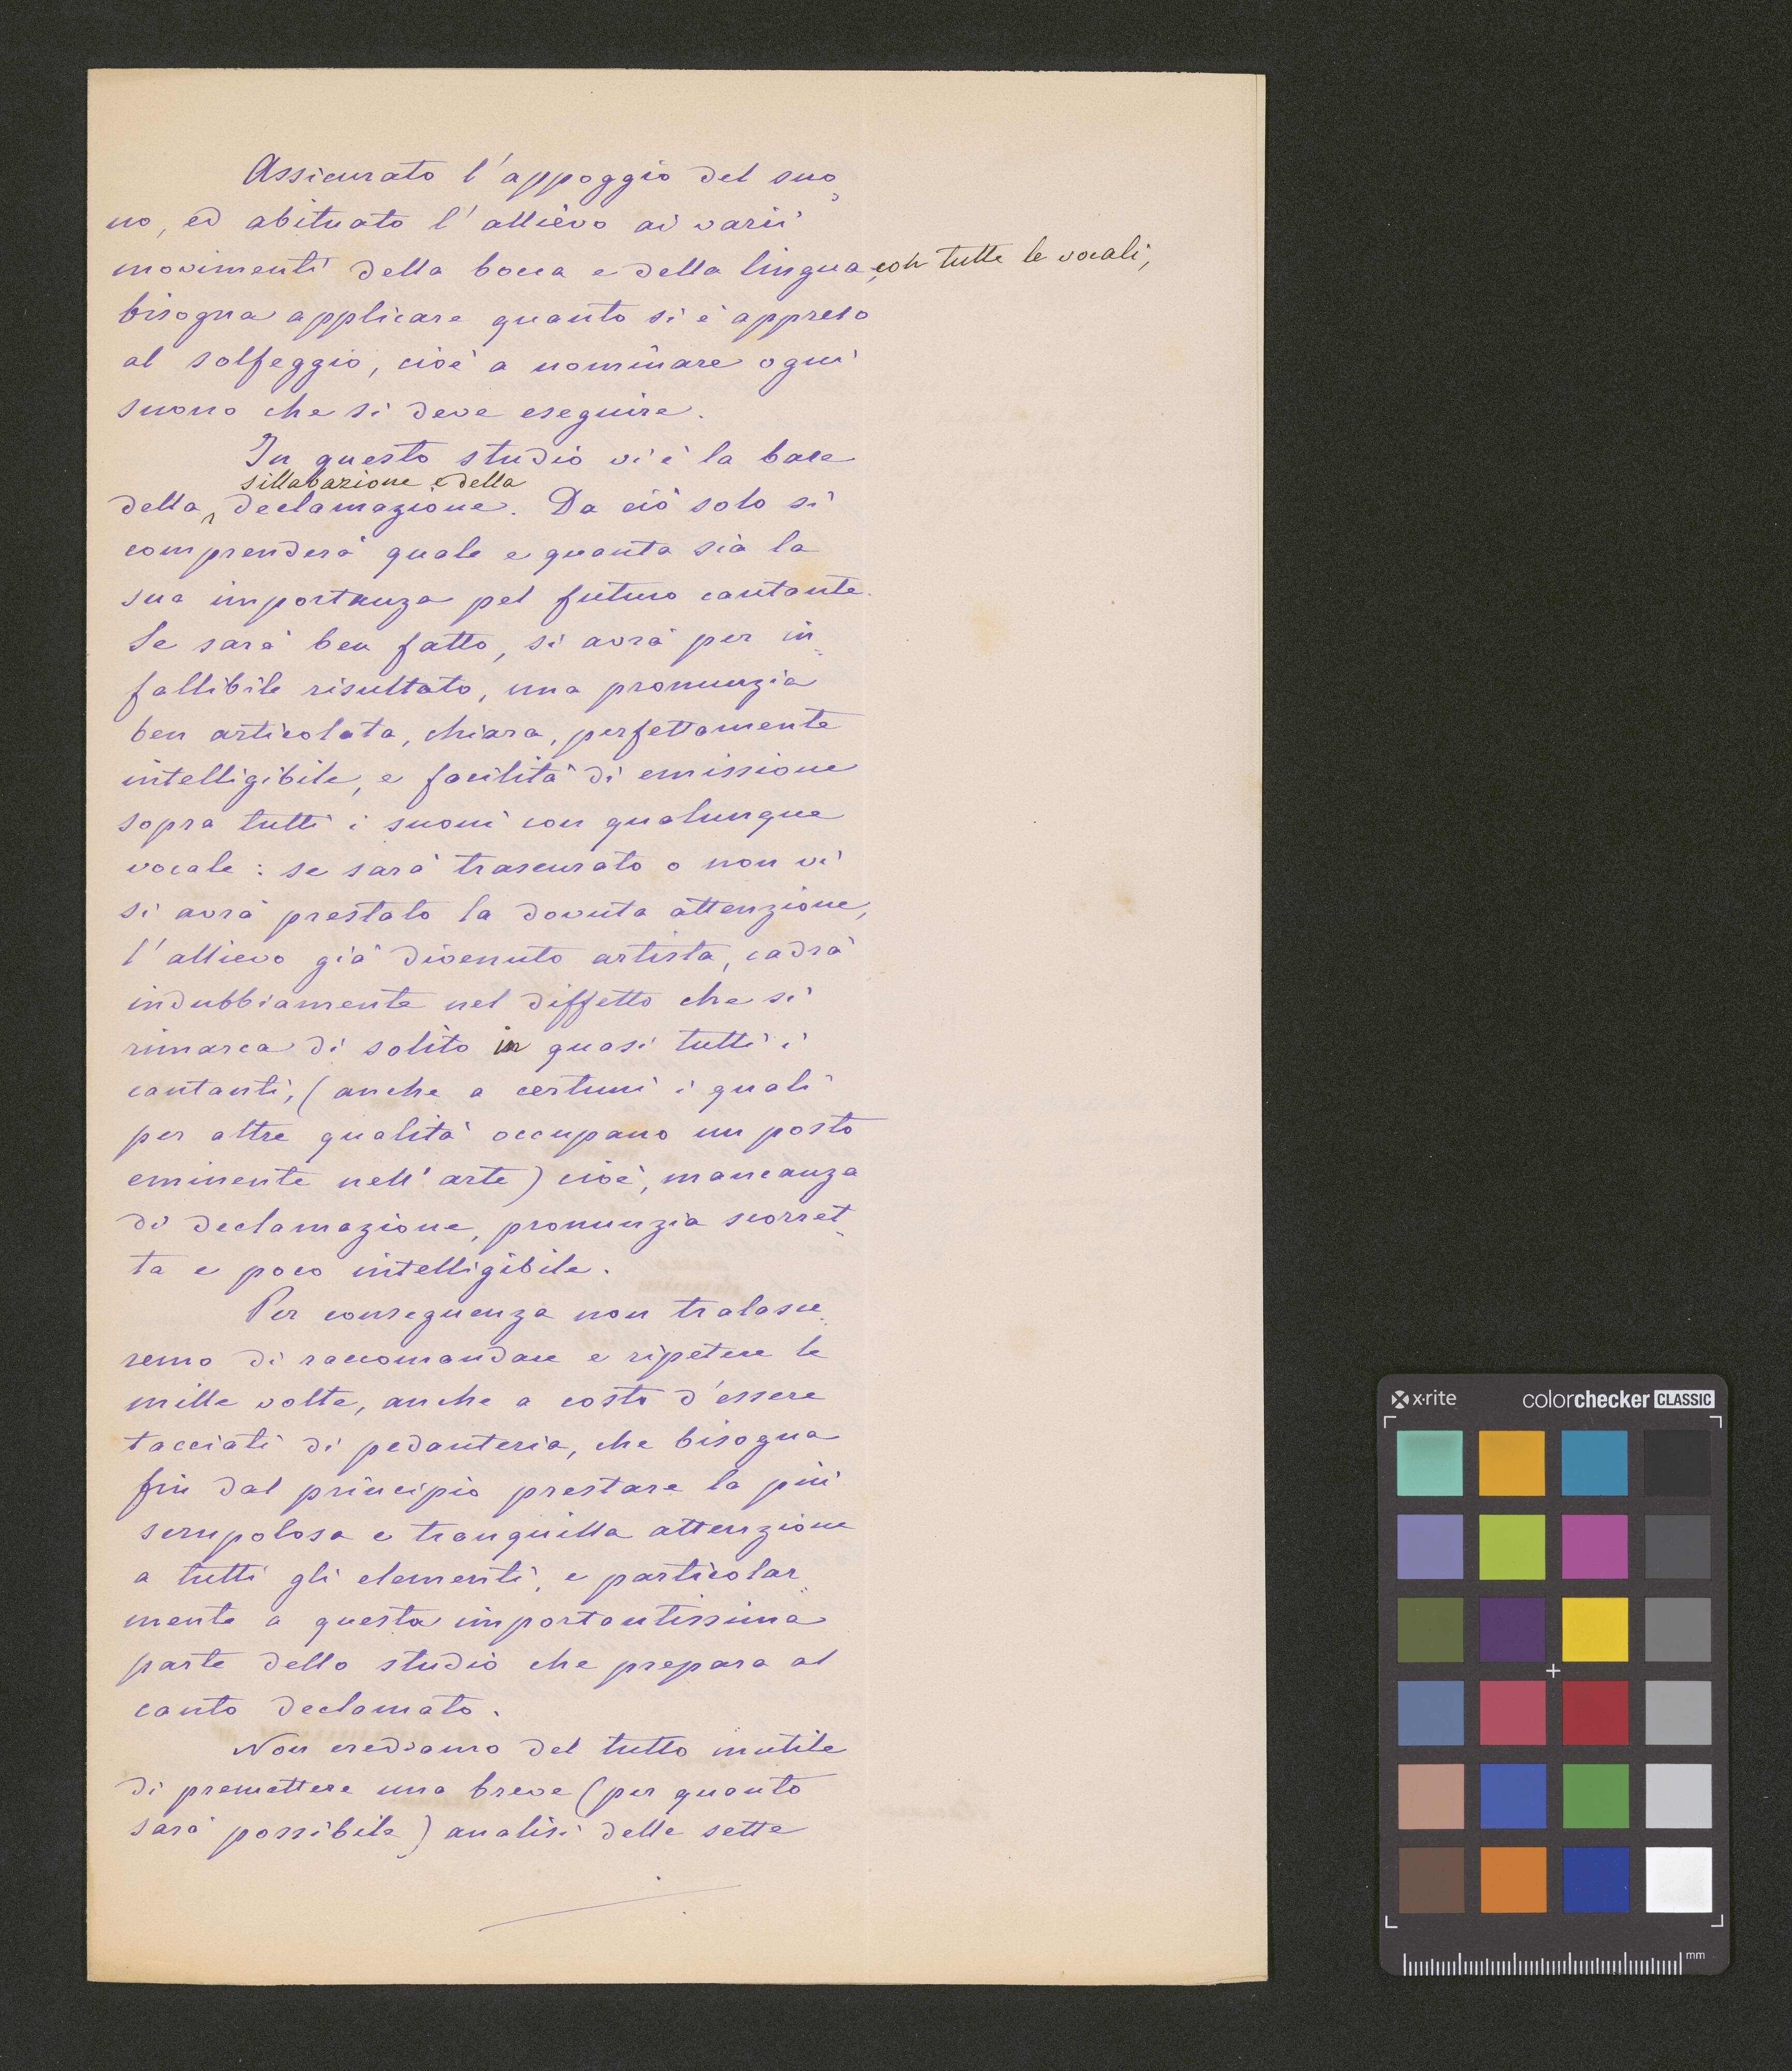 Assicurato l'appoggio del suo-
no, ed abituato l'allievo ai varii
movimenti della bocca e della lingua, con tutte le vocali,
bisogna applicare quanto si è appreso
al solfeggio, cioè a nominare ogni
suono che si deve eseguire.
In questo studio vi è la base
sillabazione e della
della declamazione. Da ciò solo si
comprenderà quale e quanta sia la
sua importanza pel futuro cantante.
Se sarà ben fatto, si avrà per in-
fallibile risultato, una pronunzia
ben articolata, chiara, perfettamente
intelligibile, e facilità di emissione
sopra tutti i suoni con qualunque
vocale: se sarà trascurato o non vi
si avrà prestato la dovuta attenzione,
l'allievo già divenuto artista, cadrà
indubbiamente nel diffetto che si
rimarca di solito in quasi tutti i
cantanti, (anche a certuni i quali
per altre qualità occupano un posto
eminente nell'arte) cioè, mancanza
di declamazione, pronunzia scorret-
ta e poco intelligibile.
Per conseguenza non tralasce-
remo di raccomandare e ripetere le
mille volte, anche a costo d'essere
tacciati di pedanteria, che bisogna
fin dal principio prestare la più
scrupolosa e tranquilla attenzione
a tutti gli elementi, e particolar-
mente a questa importantissima
parte dello studio che prepara al
canto declamato.
Non crediamo del tutto inutile
di premettere una breve (per quanto
sarà possibile) analisi delle sette
x-rite colorchecker CLASSIC
mm